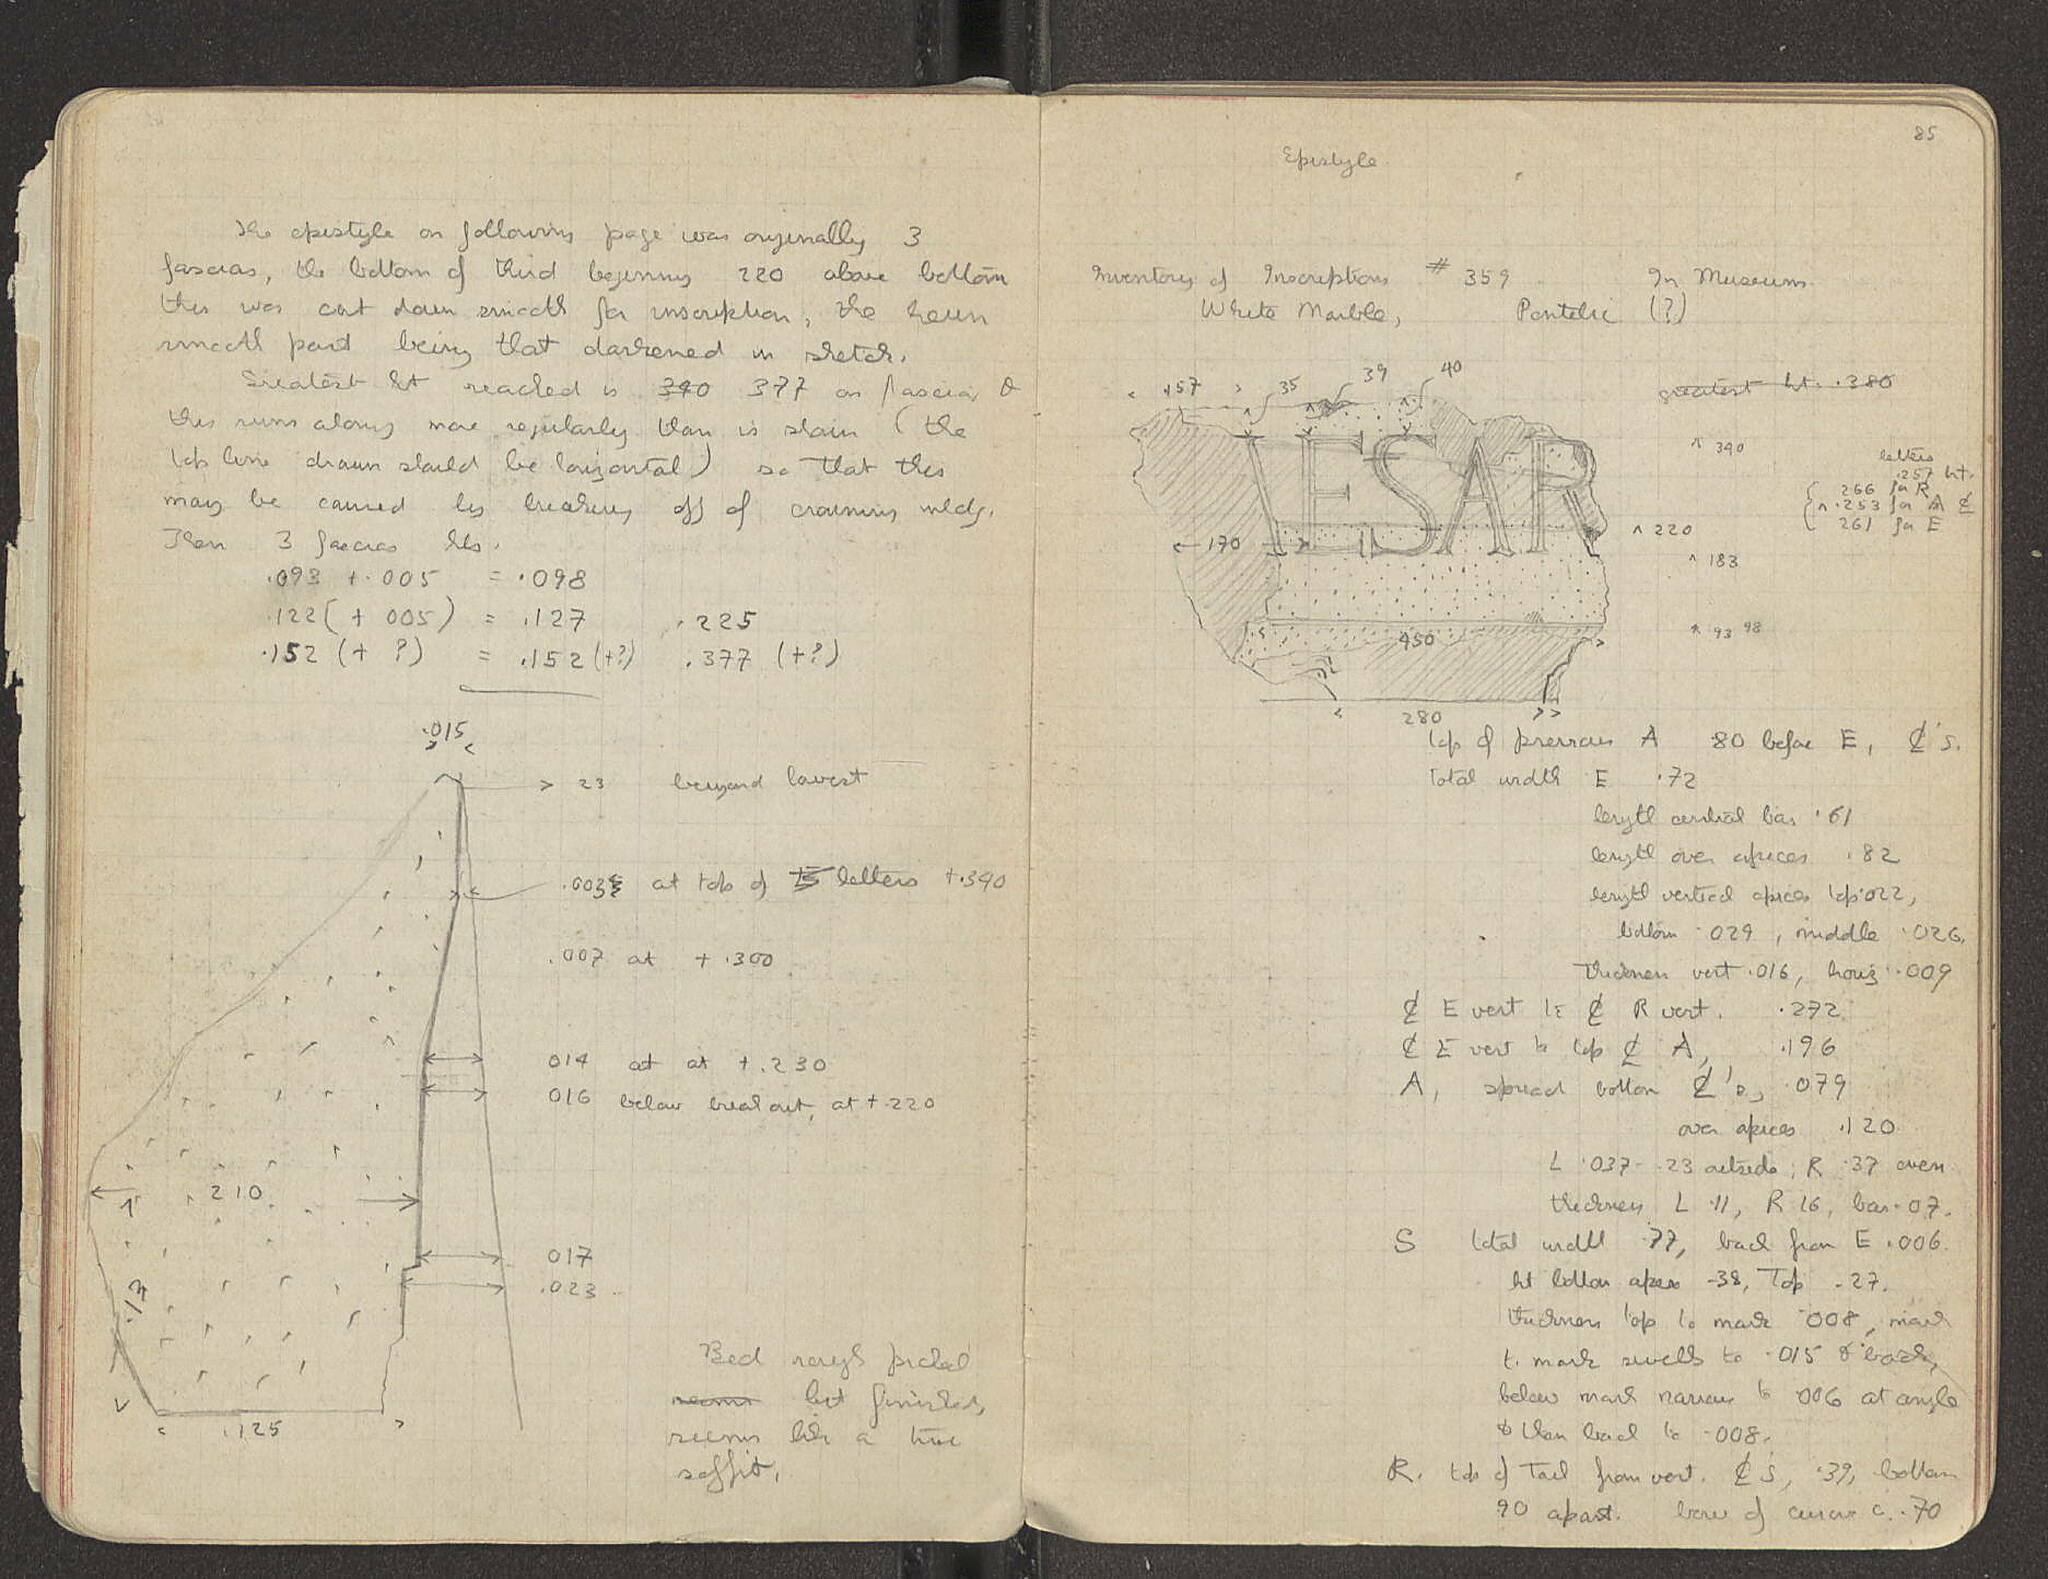 The epistyle on following page was originally 3
fascias, the bottom of third beginning 220 above bottom
this was cut down smooth for inscription, the
smooth part being that darkened in sketch.
Greatest ht reached is 390 377 on fascia, &
this runs along more regularly than is shown (the
top line drawn should be horizontal) so that this
may be caused by breaking off of crowning mldg.
Then 3 fascias hts.
.093 + .005 = .098
.122 (+ 005) = .127 .225
.152 (+ ?) = .152 (+?) .377 (+?)
.015
23 beyond lowest
.003 at top of letters +.390
.007 at + .300
014 at at +.230
016 below break out, at +.220
210
017
.023
.125
Bed rough picked
seems but finished,
seems like a true
soffit.
85
Epistyle
Inventory of Inscriptions # 359 In Museum.
White Marble, Pentelic (?)
.157 35 39 40
greatest ht. .380
390
letters
.257 ht.
266 for R
.253 for A ₵
261 for E
ESAR
170
220
183
93 98
450
280
top of previous A 80 before E, ₵'s.
total width E .72
length central bar .61
length over apices .82
length vertical apices top .022,
bottom .029, middle .026.
thickness vert .016, horiz .009
₵ E vert to ₵ R vert. .272
₵ E vert to top ₵ A, .196
A, spread bottom ₵'s, .079
over apices .120
L .037 - .23 outside; R .37 even
thickness L .11, R 16, bar .07.
S total width .77, back from E .006.
ht bottom apex .38, Top .27.
thickness top to mark .008, mark
to mark swells to .015 & back,
below mark narrows to 006 at angle
& then back to .008.
R. top of Tail from vert. ₵'s, .39, bottom
90 apart. of curve c. .70